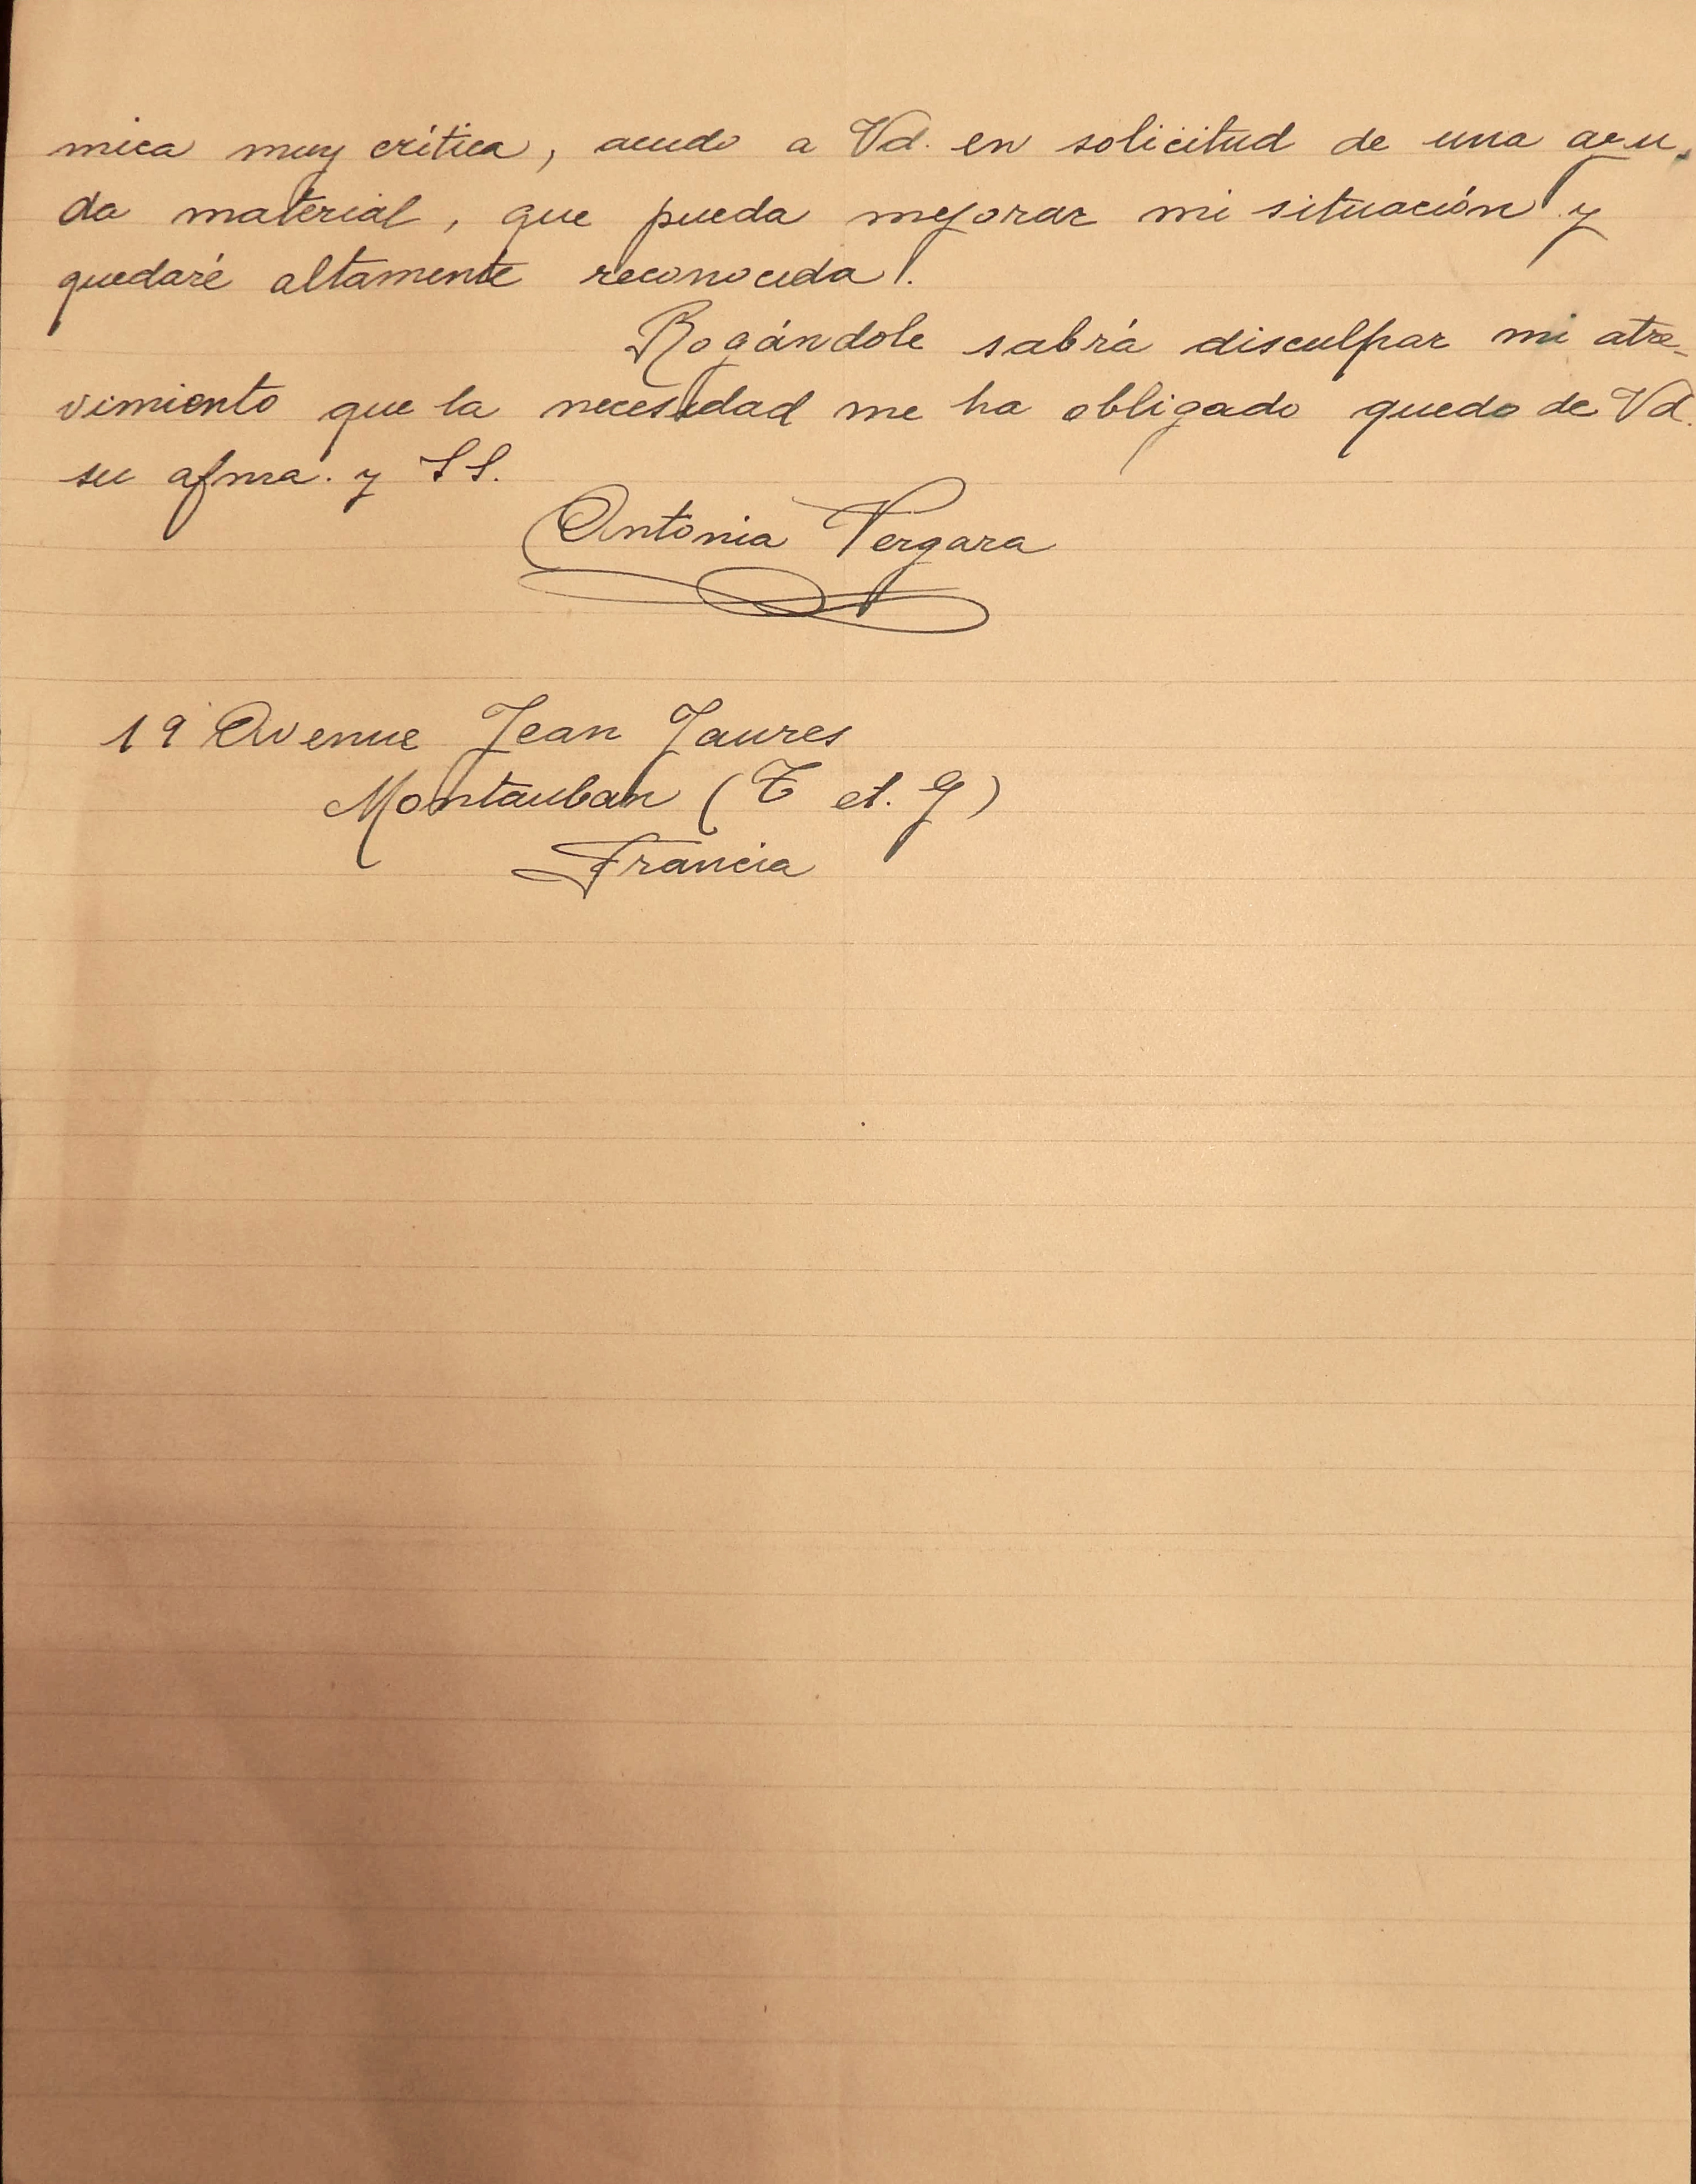 mica muy crítica, acudo a Vd. en solicitud de una ayu-
da material, que pueda mejorar mi situación y
quedaré altamente reconocida.
Rogándole sabrá disculpar mi atre-
vimiento que la necesidad me ha obligado quedo de Vd.
su afma. y SS.
Antonia Vergara
19 Avenue Jean Jaures
Montauban (T et. G)
Francia